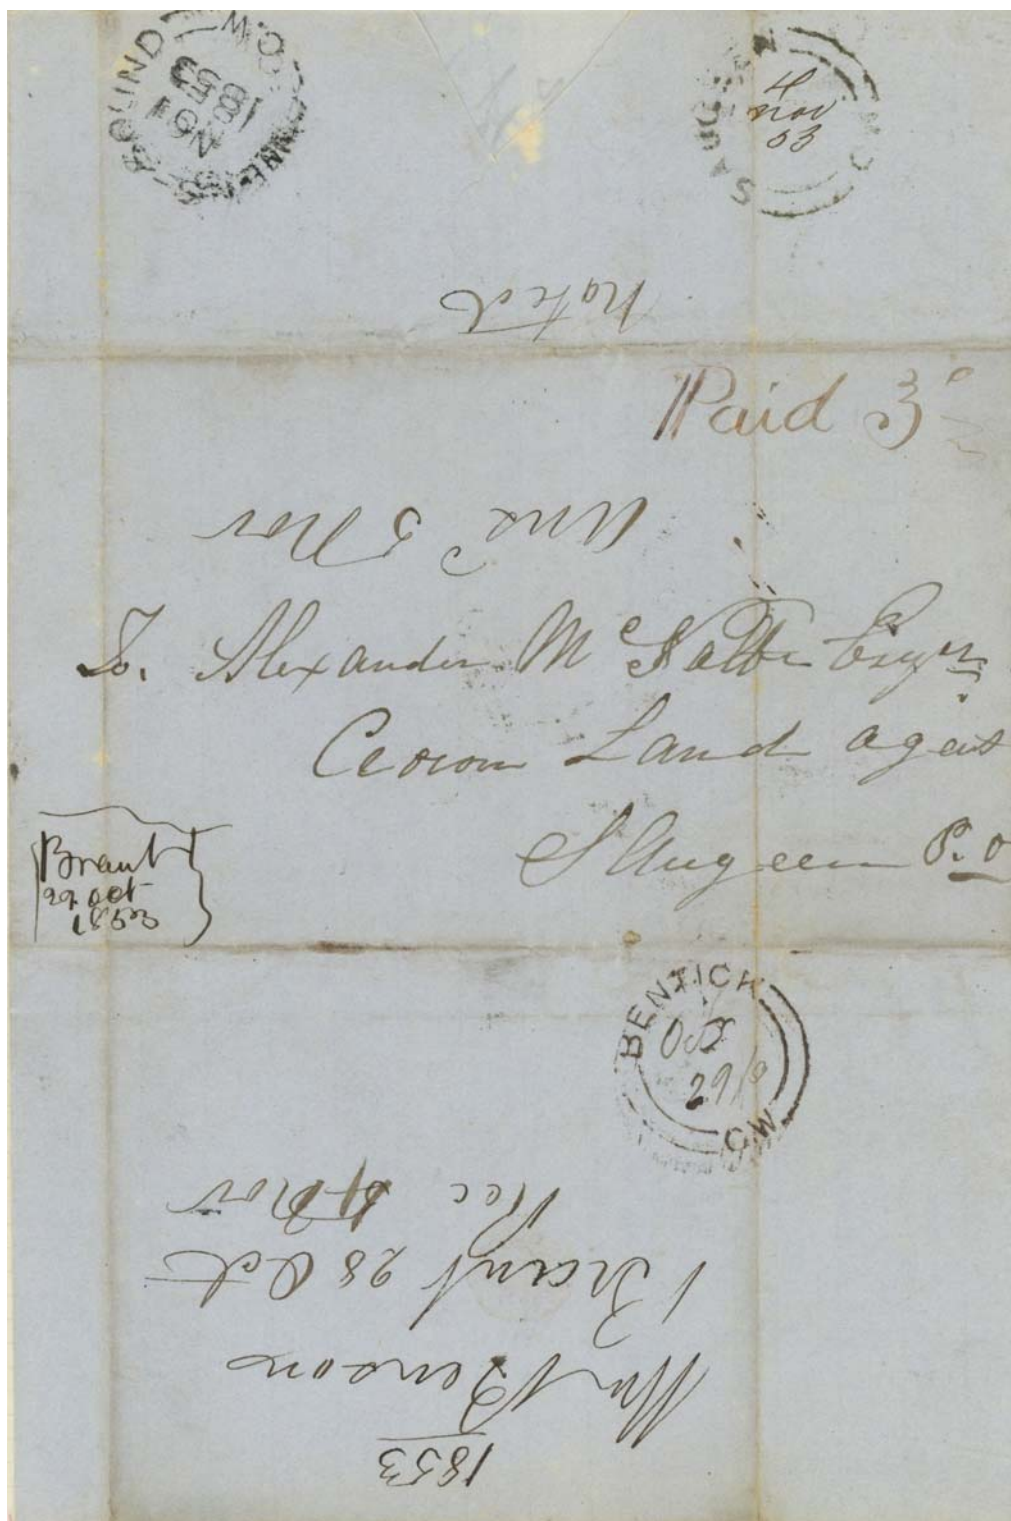 OWEN'S SOUND C.W
NO 5
1853
SAUGEEN
4
Nov
53
Noted
Paid 3
Ans 5 Nov
To. Alexander McNabb Esqr.
Crown Land agent
Saugeen P. O
Brant
29 Oct
1853
BENTICK CW
Oct
29/
1853
Wm Benson
Brant 28 Oct
Rec 4 Nov